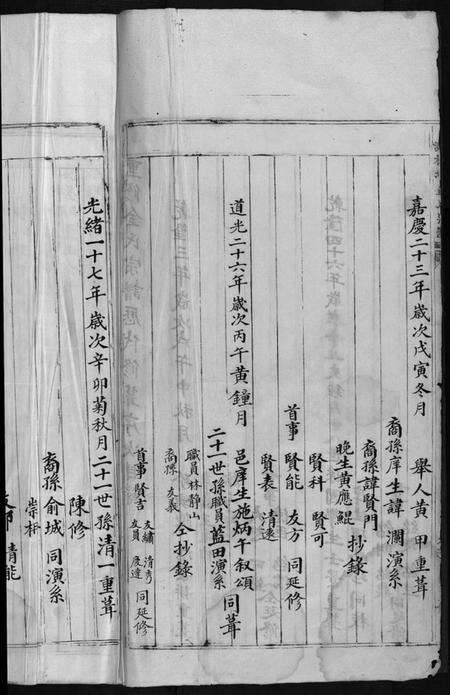 嘉慶二十三年歲次戊寅冬月 舉人黃甲重葺
裔孫庠生諱瀾演系
裔孫諱賢門
晚生黃應鯤 抄錄
賢科 賢可
首事 賢能 友方 同延修
賢表 清遠
道光二十六年歲次丙午黃鐘月 邑庠生施炳午叙頌
二十一世孫職員藍田演系 同葺
職員林靜山
裔孫 友義 仝抄錄
友繡 清秀
首事 賢言 同延修
友員 慶達
光緒一十七年歲次辛卯菊秋月二十一世孫清一重葺
陳修
裔孫俞城 同演系
崇杆
清能